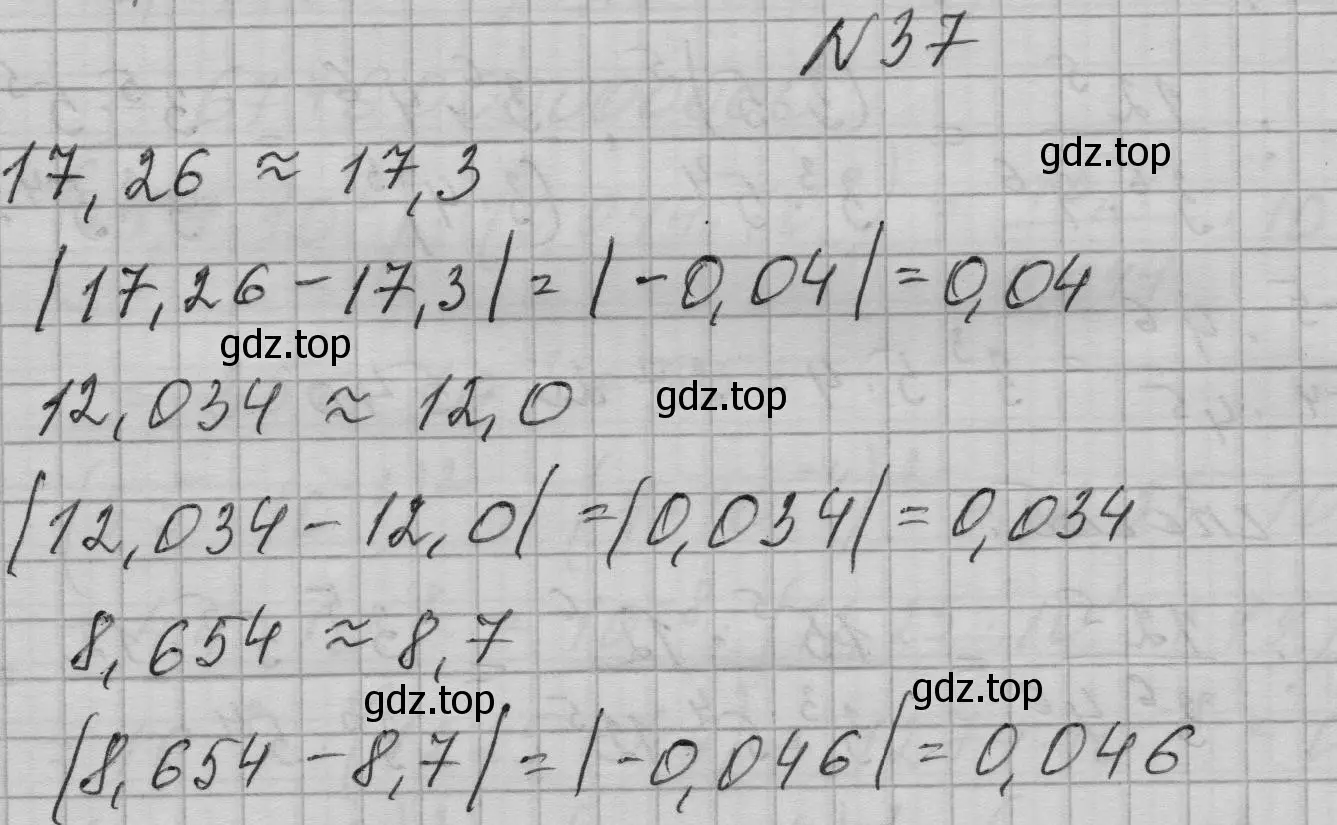 N 37
gdz.top
17,26 ≈ 17,3
|17,26 - 17,3| = |-0,04| = 0,04
gdz.top
12,034 ≈ 12,0
gdz.top
|12,034 - 12,0| = |0,034| = 0,034
8,654 ≈ 8,7
gdz.top
gdz.top
|8,654 - 8,7| = |-0,046| = 0,046